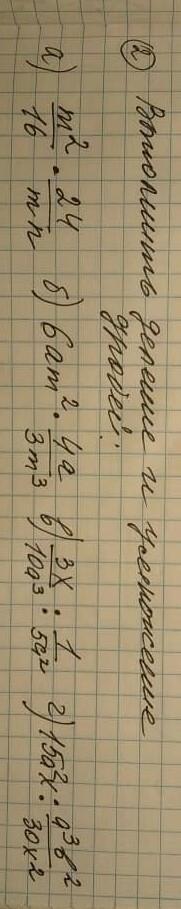 ② Выполнить деление и умножение
дробей:
а) m²/16 · 24/mn б) 6am² · 4a/3m³ в) 3x/10a³ : 1/5a² г) 15a²x : a³b²/30x²